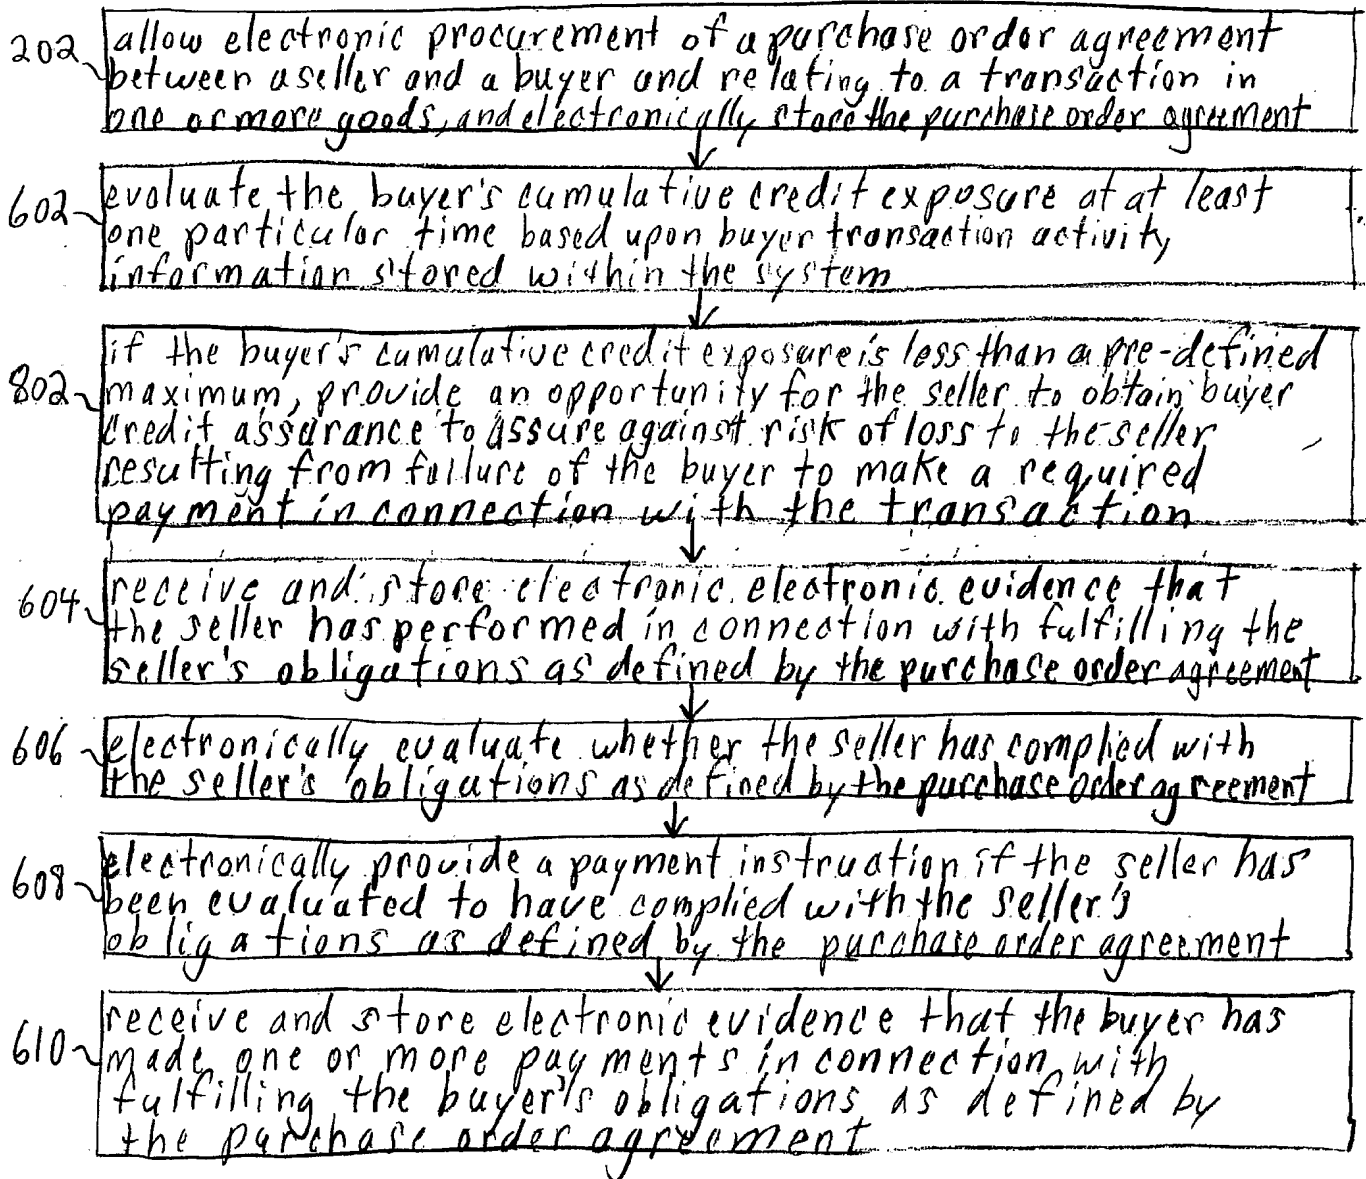 202 allow electronic procurement of a purchase order agreement
between a seller and a buyer and relating to a transaction in
one or more goods, and electronically store the purchase order agreement
602 evaluate the buyer's cumulative credit exposure at at least
one particular time based upon buyer transaction activity
information stored within the system
if the buyer's cumulative credit exposure is less than a pre-defined
802 maximum, provide an opportunity for the seller to obtain buyer
credit assurance to assure against risk of loss to the seller
resulting from failure of the buyer to make a required
payment in connection with the transaction
604 receive and store electronic electronic evidence that
the seller has performed in connection with fulfilling the
seller's obligations as defined by the purchase order agreement
606 electronically evaluate whether the seller has complied with
the seller's obligations as defined by the purchase order agreement
electronically provide a payment instruction if the seller has
608 been evaluated to have complied with the seller's
obligations as defined by the purchase order agreement
receive and store electronic evidence that the buyer has
610 made one or more payments in connection with
fulfilling the buyer's obligations as defined by
the purchase order agreement